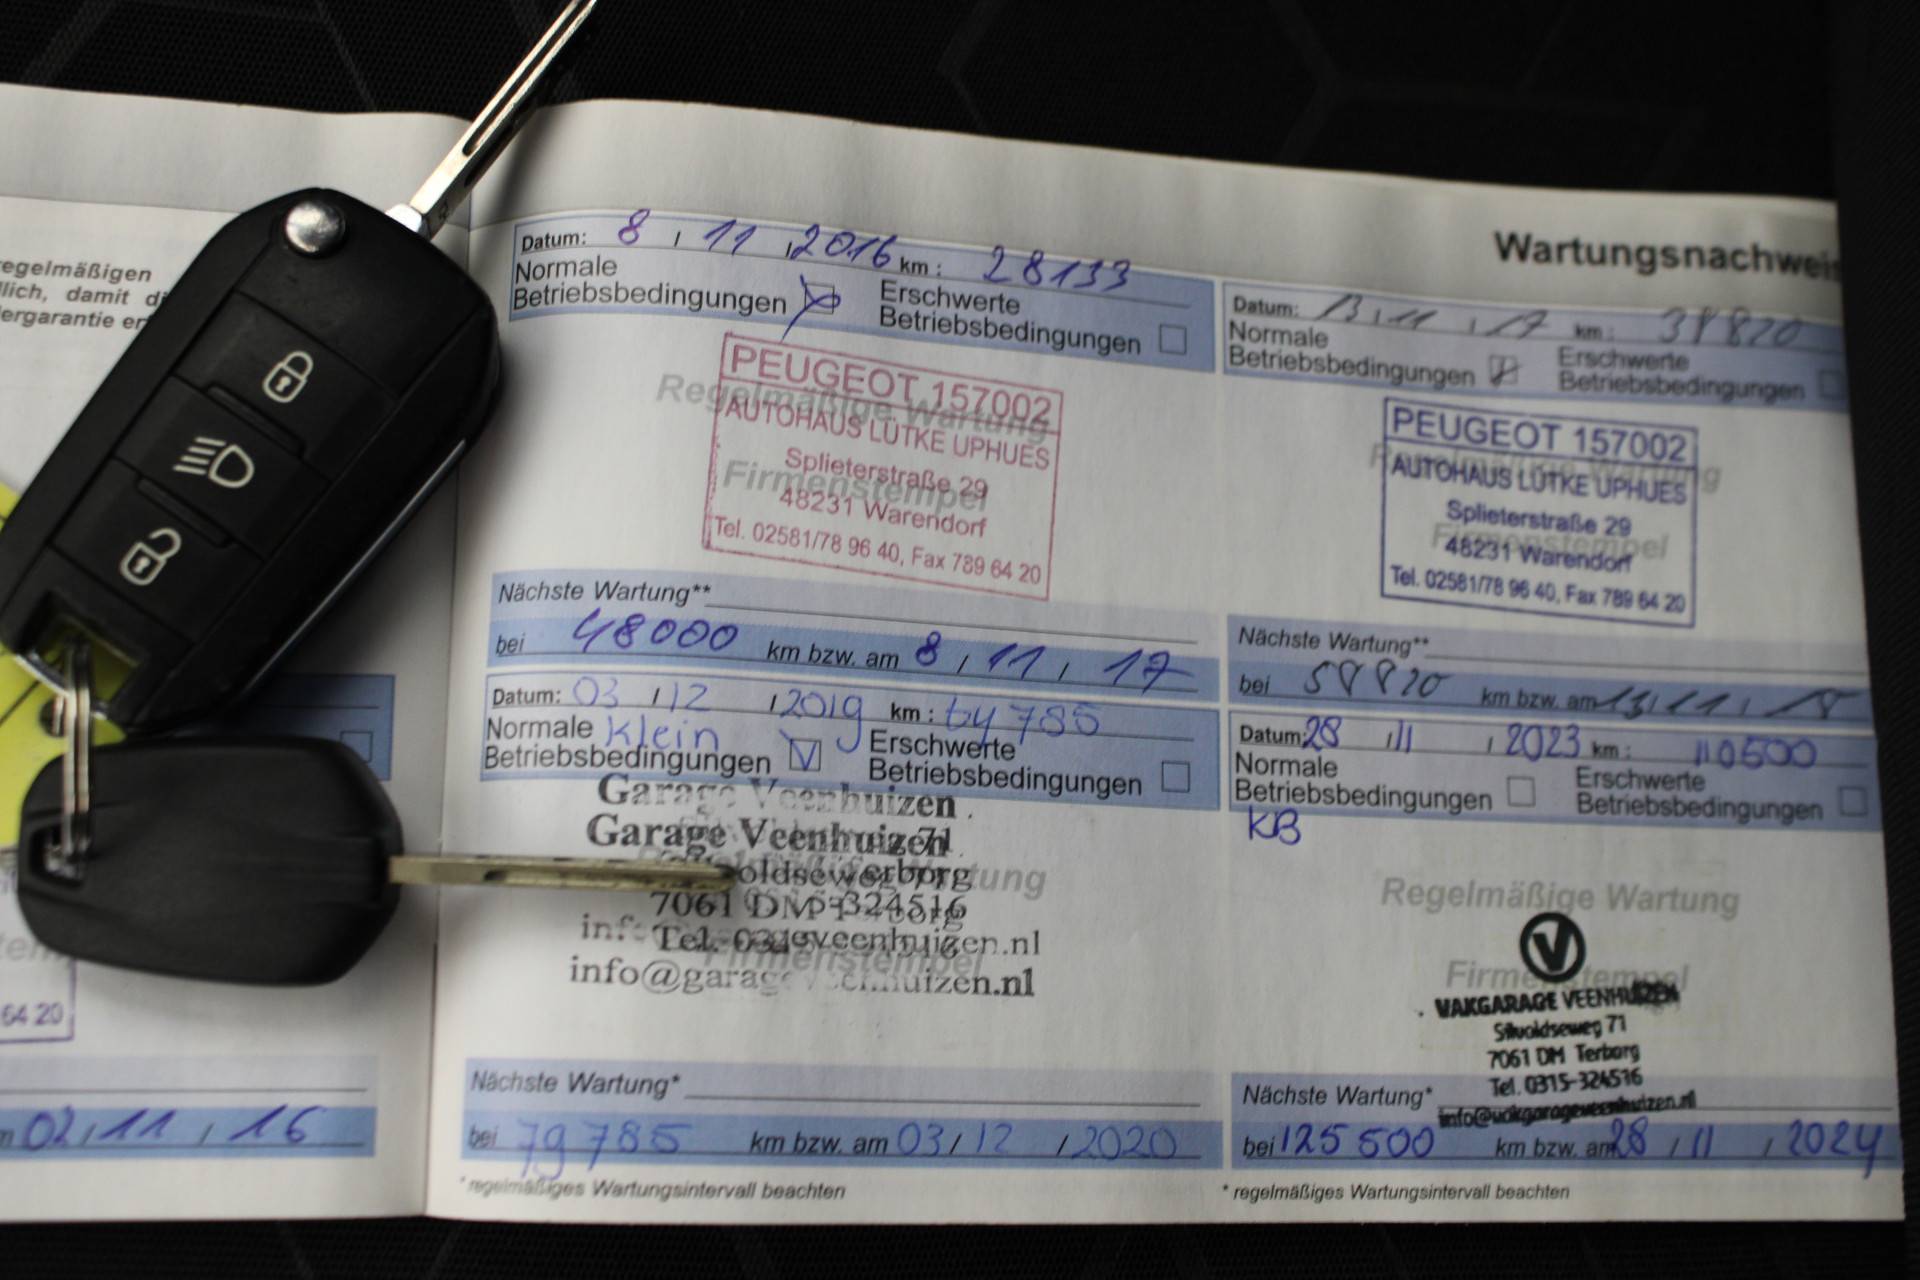 egelmäßigen
lich, damit di
ergarantie er
64 20
02/11/16
Wartungsnachweis
Datum: 8/11/2016 km: 28133
Normale
Betriebsbedingungen
Erschwerte
Betriebsbedingungen
Regelmäßige Wartung
Firmenstempel
PEUGEOT 157002
AUTOHAUS LÜTKE UPHUES
Splieterstraße 29
48231 Warendorf
Tel. 02581/78 96 40, Fax 789 64 20
Nächste Wartung**
bei 48000 km bzw. am 8/11/17
Datum: 13/11/17 km: 38820
Normale
Betriebsbedingungen
Erschwerte
Betriebsbedingungen
Regelmäßige Wartung
Firmenstempel
PEUGEOT 157002
AUTOHAUS LÜTKE UPHUES
Splieterstraße 29
48231 Warendorf
Tel. 02581/78 96 40, Fax 789 64 20
Nächste Wartung**
bei 58820 km bzw. am 13/11/18
Datum: 03/12/2019 km: 64785
Normale Klein
Betriebsbedingungen
Erschwerte
Betriebsbedingungen
Garage Veenhuizen
Garage Veenhuizen
7061 DM
info@garageveenhuizen.nl
Firmenstempel
Nächste Wartung*
bei 79785 km bzw. am 03/12/2020
* regelmäßiges Wartungsintervall beachten
Datum: 28/11/2023 km: 110500
Normale
Betriebsbedingungen
Erschwerte
Betriebsbedingungen
KB
Regelmäßige Wartung
Firmenstempel
V
VAKGARAGE VEENHUIZEN
Silvoldseweg 71
7061 DM Terborg
Tel. 0315-324516
info@vakgarageveenhuizen.nl
Nächste Wartung*
bei 125500 km bzw. am 28/11/2024
* regelmäßiges Wartungsintervall beachten